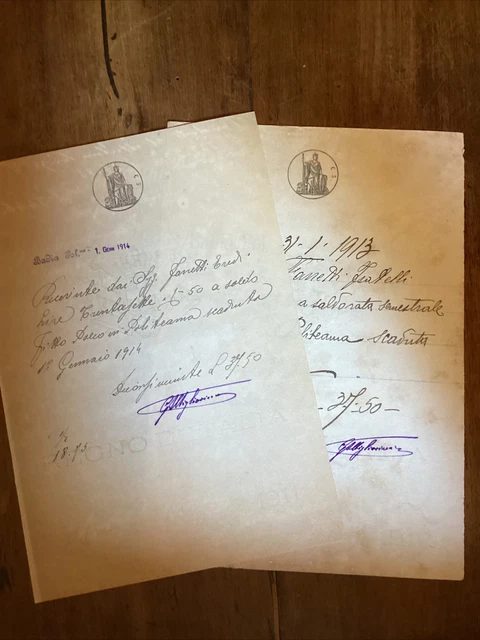 Badia Pol.ne 1. Genn 1914
Ricevute dai Sgg. Zanetti Eredi
Lire Trentasette : 50 a saldo
fitto Palco in Politeama scaduta
1º Gennaio 1914
L 37.50
18.75
31-1-1913
Zanetti Fratelli
a saldo rata semestrale
Politeama scaduta
37-50-